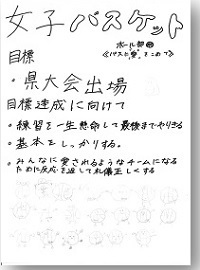 女子バスケット
ボール部
《パスに愛をこめて》
目標
・県大会出場
目標達成に向けて
・練習を一生懸命して最後までやりきる
・基本をしっかりする。
・みんなに愛されるようなチームになる
ために反応を返して礼儀正しくする